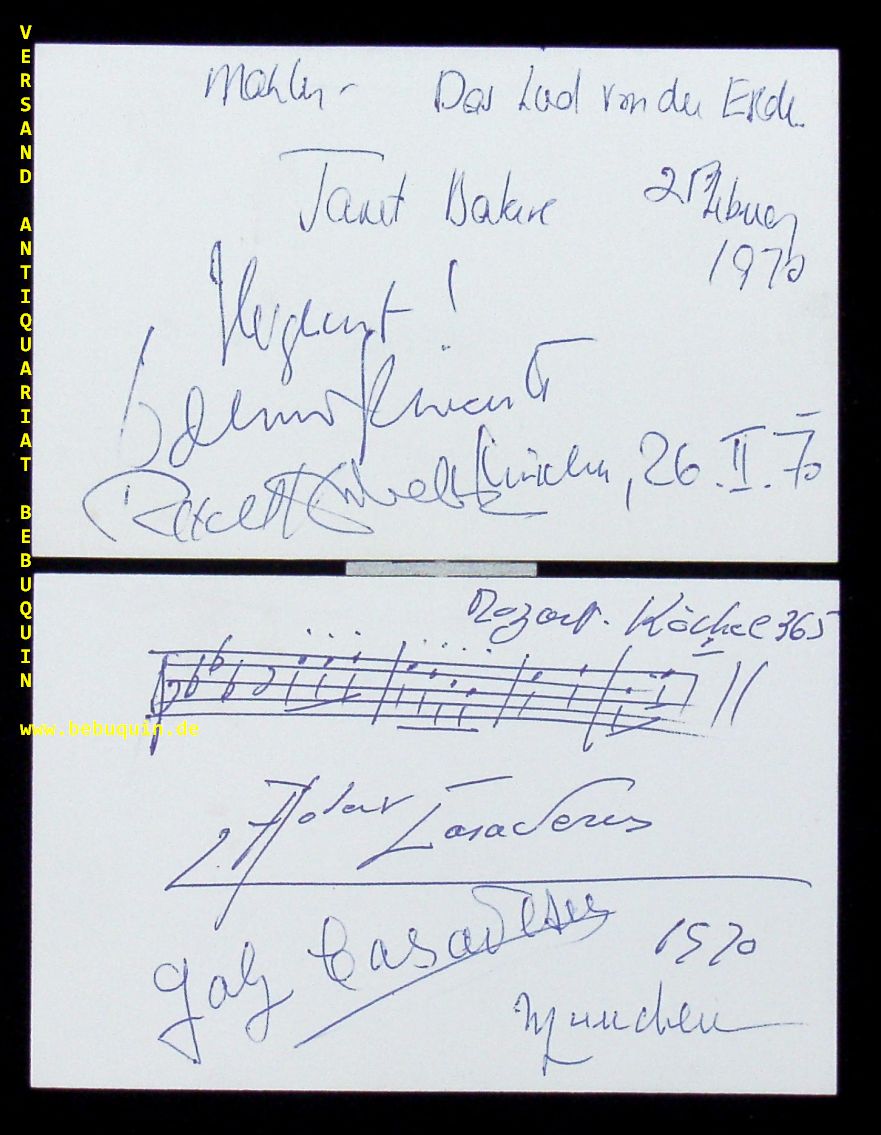 VERSAND ANTIQUARIAT BEBUQUIN
www.bebuquin.de
Mahler - Das Lied von der Erde.
Janet Baker
February
1970
!
München, 26.II.70
Mozart. Köchel 365
Robert Casadesus
Gaby Casadesus
1970
München